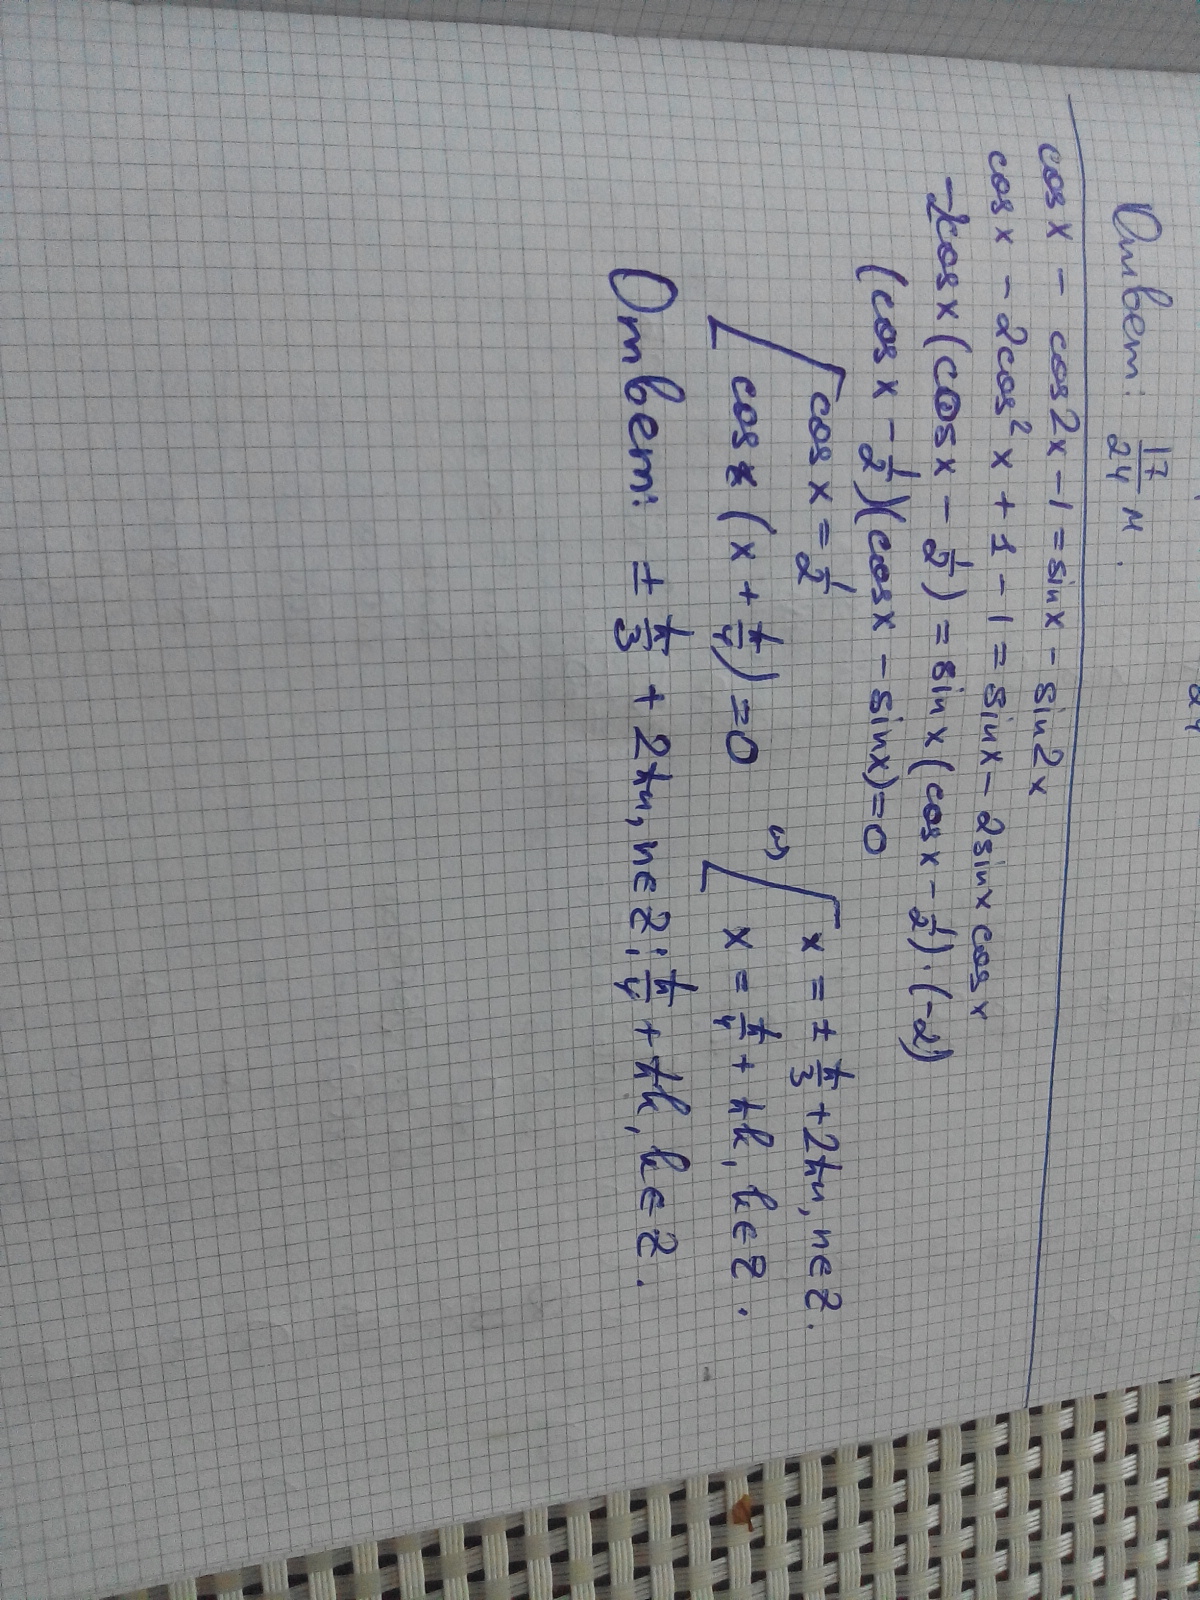 24
Ответ: 17/24 м.
cos x - cos 2x - 1 = sin x - sin 2x
cos x - 2cos² x + 1 - 1 = sin x - 2 sin x cos x
-2cos x (cos x - 1/2) = sin x (cos x - 1/2) · (-2)
(cos x - 1/2)(cos x - sin x) = 0
[ cos x = 1/2 [ x = ± π/3 + 2πn, n ∈ Z.
cos (x + π/4) = 0 x = π/4 + πk, k ∈ Z.
Ответ: ± π/3 + 2πn, n ∈ Z; π/4 + πk, k ∈ Z.